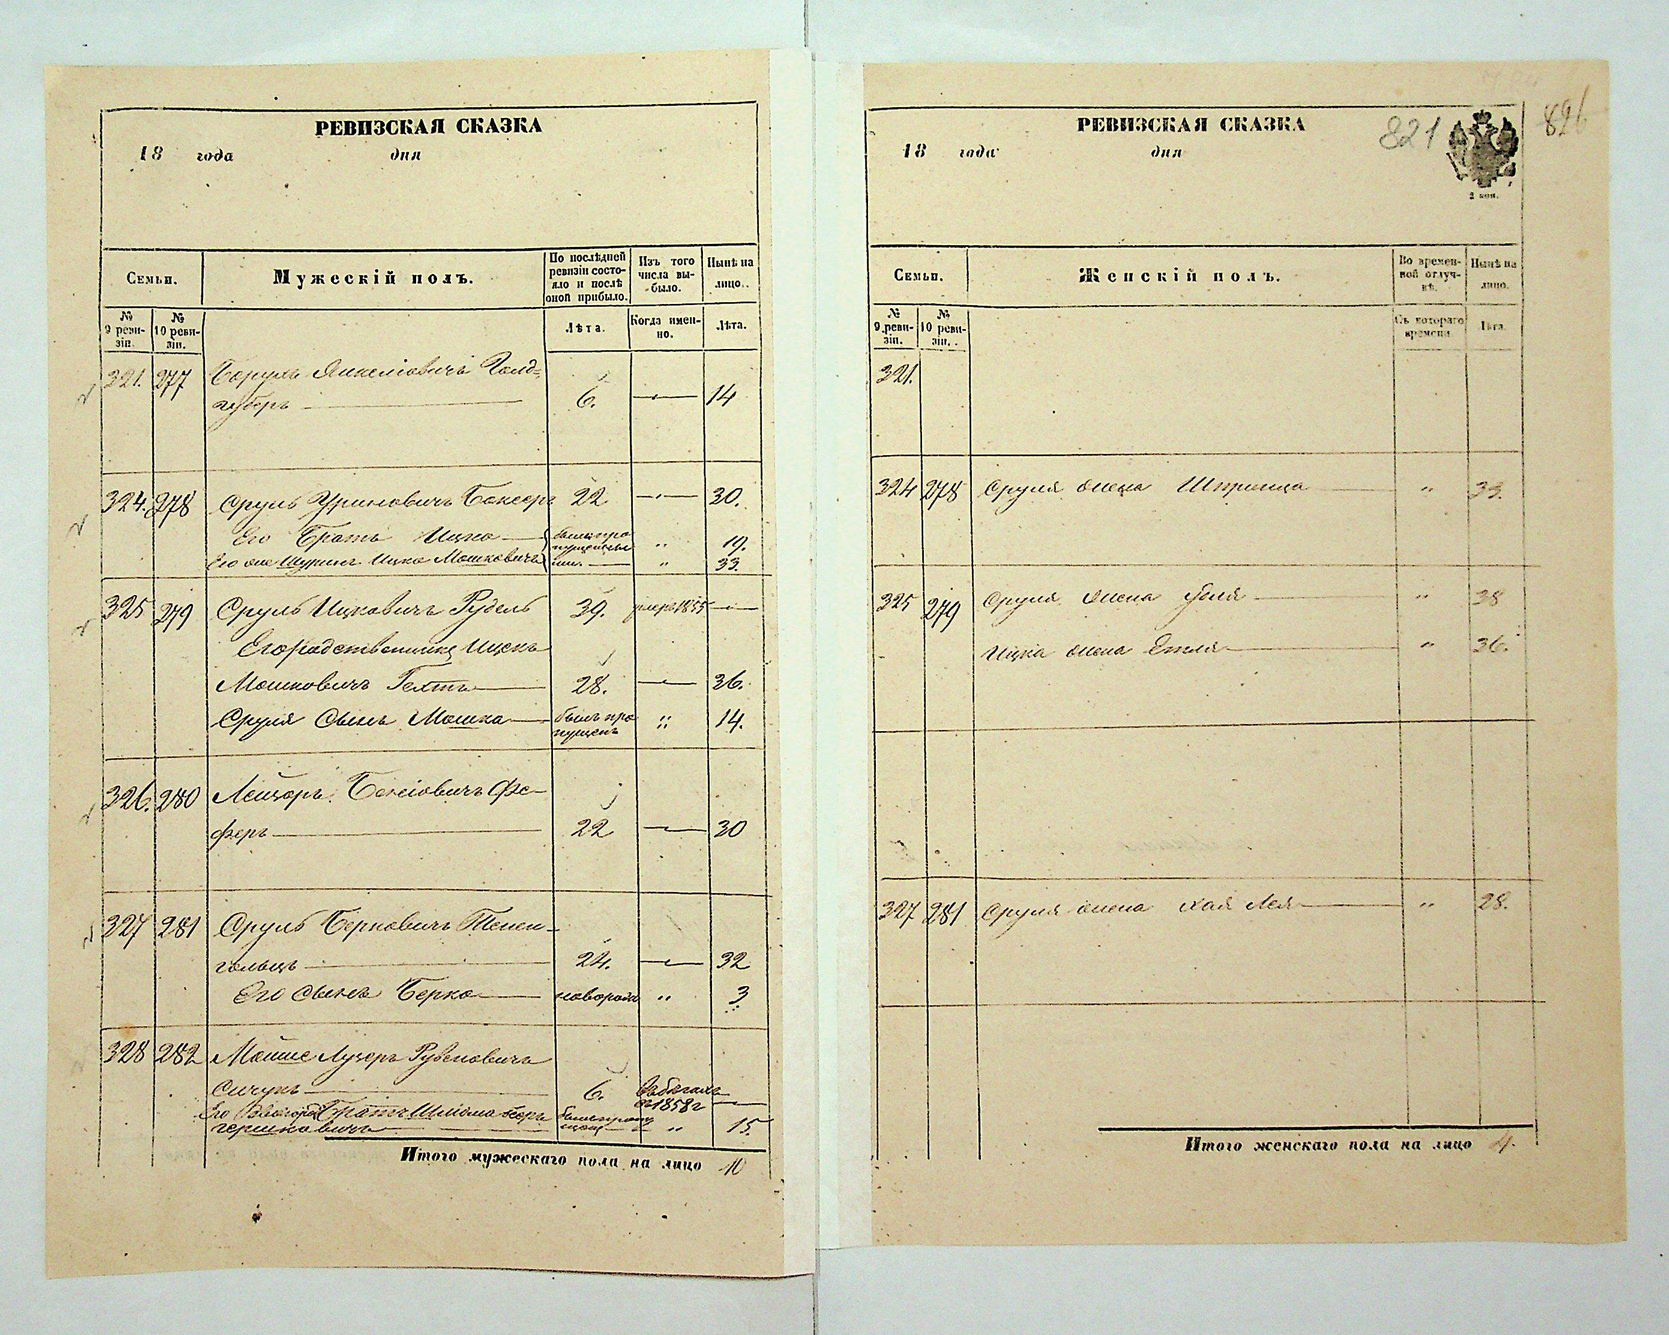 РЕВИЗСКАЯ СКАЗКА
18 года дня
Семьи.
Мужескій полъ.
По послѣдней ревизіи состо-
яло и послѣ оной прибыло.
Изъ того числа вы-
было.
Нынѣ на лицо.
№ 9 реви-
зіи.
№ 10 реви-
зіи.
Лѣта.
Когда имен-
но.
Лѣта.
321. 277 Янкеліовичъ Голд-
6. 14
324. 278 Сруль Боксеръ 22 30.
Его Братъ Ицко были про „ 19.
Его же Шуринъ Ицко Мошковичъ пущены „ 33.
325 279 Сруль Ицковичъ Рудель 39. умеръ 1855
Его родственникъ Ицекъ
Мошковичъ 28. 36.
Сруля Сынъ Мошка былъ про „ 14.
пущенъ
326. 280 Лейзоръ Фе-
феръ 22 30
327 281 Сруль Берковичъ Тенен-
гольцъ 24. 32
Его сынъ Берко новорож „ 3.
328 282 Мойше Лузеръ Рувеновичъ
6. въ бѣгахъ
съ 1858 г
Его Братъ Шліома
гершковичъ „ 15.
Итого мужескаго пола на лицо 10
821
826
РЕВИЗСКАЯ СКАЗКА
18 года дня
2 коп.
Семьи.
Женскій полъ.
Во времен-
ной отлуч-
кѣ.
Нынѣ на лицо.
№ 9 реви-
зіи.
№ 10 реви-
зіи.
Съ котораго времени
Лѣта.
321.
324 278 Сруля жена Шпринца „ 33.
325 279 Сруля жена „ 38
Ицка жена Етля „ 36.
327 281 Сруля жена Хая Лея „ 28.
Итого женскаго пола на лицо 4.